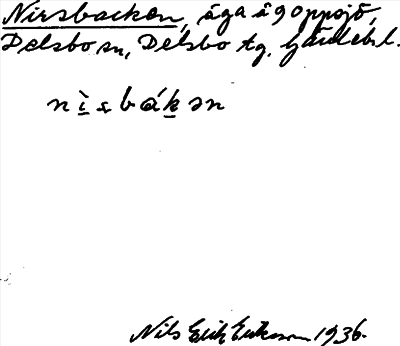 Nirsbacken, äga å Goppsjö,
Delsbo sn, Delsbo tg. Gävlebl.
n ì s b á k ən
Nils Erik Eriksson 1936.